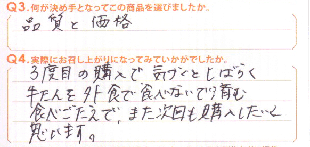 Q3.何が決め手となってこの商品を選びましたか。
品質と価格
Q4.実際にお召し上がりになってみていかがでしたか。
3度目の購入で 気づくとしばらく
牛たんを外食で食べないで済む
食べごたえで、また次回も購入したいと
思います。